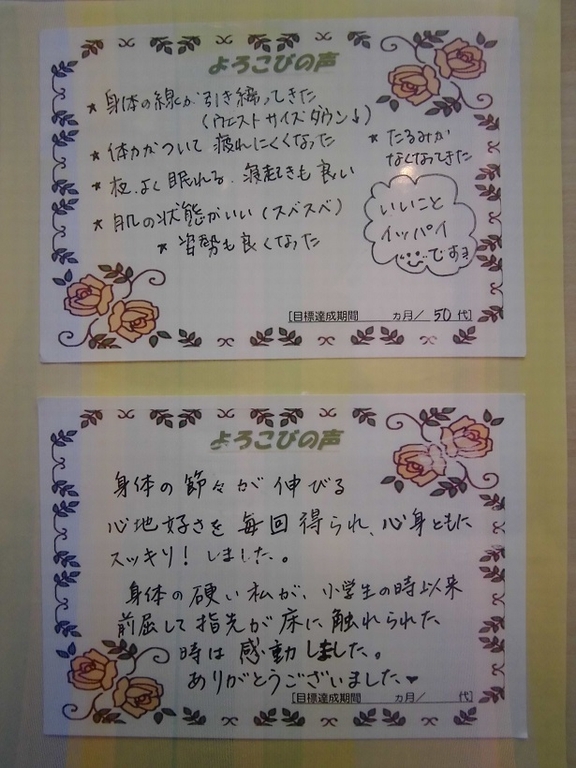 よろこびの声
★ 身体の線が引き締ってきた
(ウエストサイズダウン↓)
★ 体力がついて 疲れにくくなった
★ たるみが
なくなってきた
★ 夜、よく眠れる、寝起きも良い
★ 肌の状態がいい(スベスベ)
★ 姿勢も良くなった
いいこと
イッパイ
ですヨ
[目標達成期間 カ月/ 50 代]
よろこびの声
身体の節々が伸びる
心地好さを毎回得られ、心身ともに
スッキリ! しました。
身体の硬い私が、小学生の時以来
前屈して指先が床に触れられた
時は感動しました。
ありがとうございました♥
[目標達成期間 カ月/ 代]